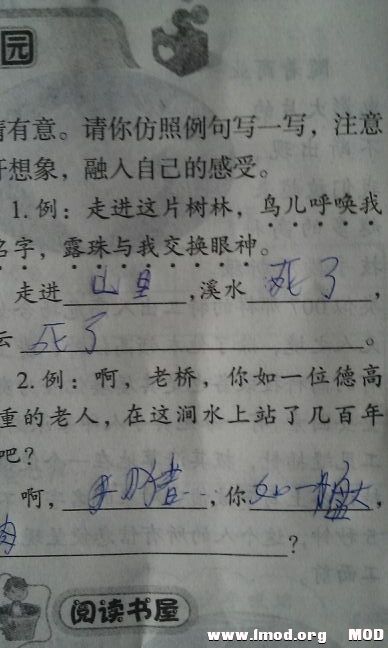 园
情有意。请你仿照例句写一写，注意
开想象，融入自己的感受。
1. 例：走进这片树林，鸟儿呼唤我
名字，露珠与我交换眼神。
走进山里，溪水死了，
云死了。
2. 例：啊，老桥，你如一位德高
重的老人，在这涧水上站了几百年
吧？
啊，，你如一盘大，
肉？
阅读书屋
www.lmod.org MOD